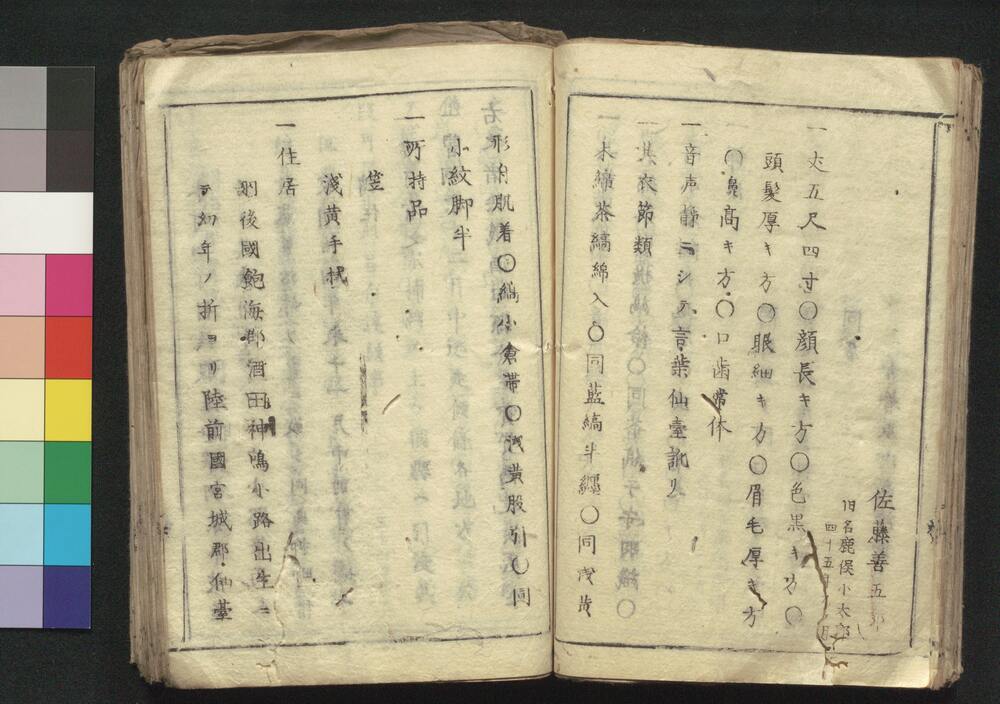 佐藤善五郎
旧名鹿俣小太郎
四十五月
一丈五尺四寸〇顔長キ方〇色黒キ方〇
頭髪厚キ方〇眼細キ方〇眉毛厚キ方
〇鼻高キ方〇口歯常体
一音声静ニシテ言葉仙臺訛リ
一其衣節類
一木綿茶縞綿入〇同藍縞半纒〇同浅黄
形付肌着〇縞小倉帯〇浅黄股引〇同
小紋脚半
一所持品
笠
浅黄手拭
一住居
羽後國飽海郡酒田神鳴小路出生ニ
テ幻年ノ折ヨリ陸前國宮城郡仙臺